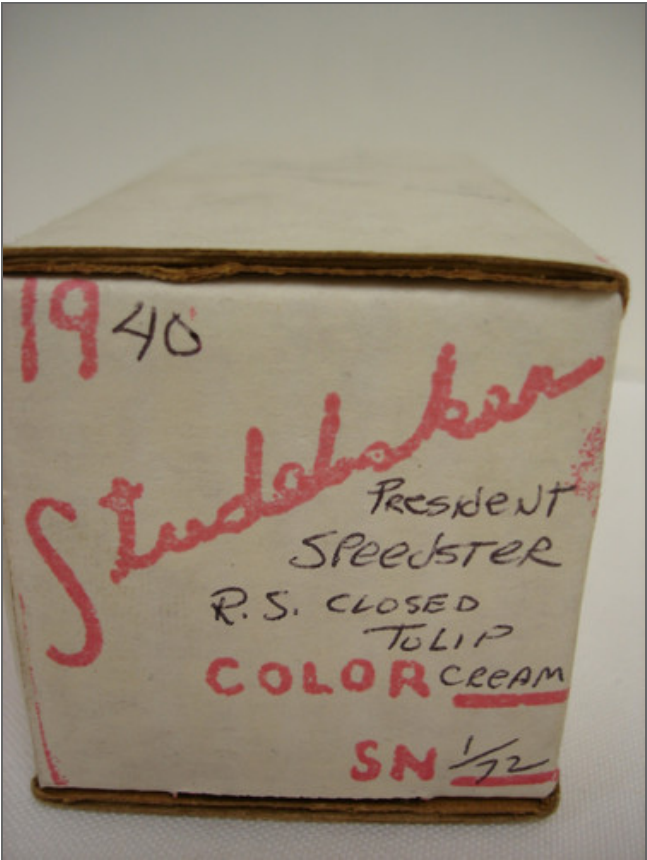 1940
Studebaker
PRESIDENT
SPEEDSTER
R.S. CLOSED
TULIP
COLOR CREAM
SN 1/72